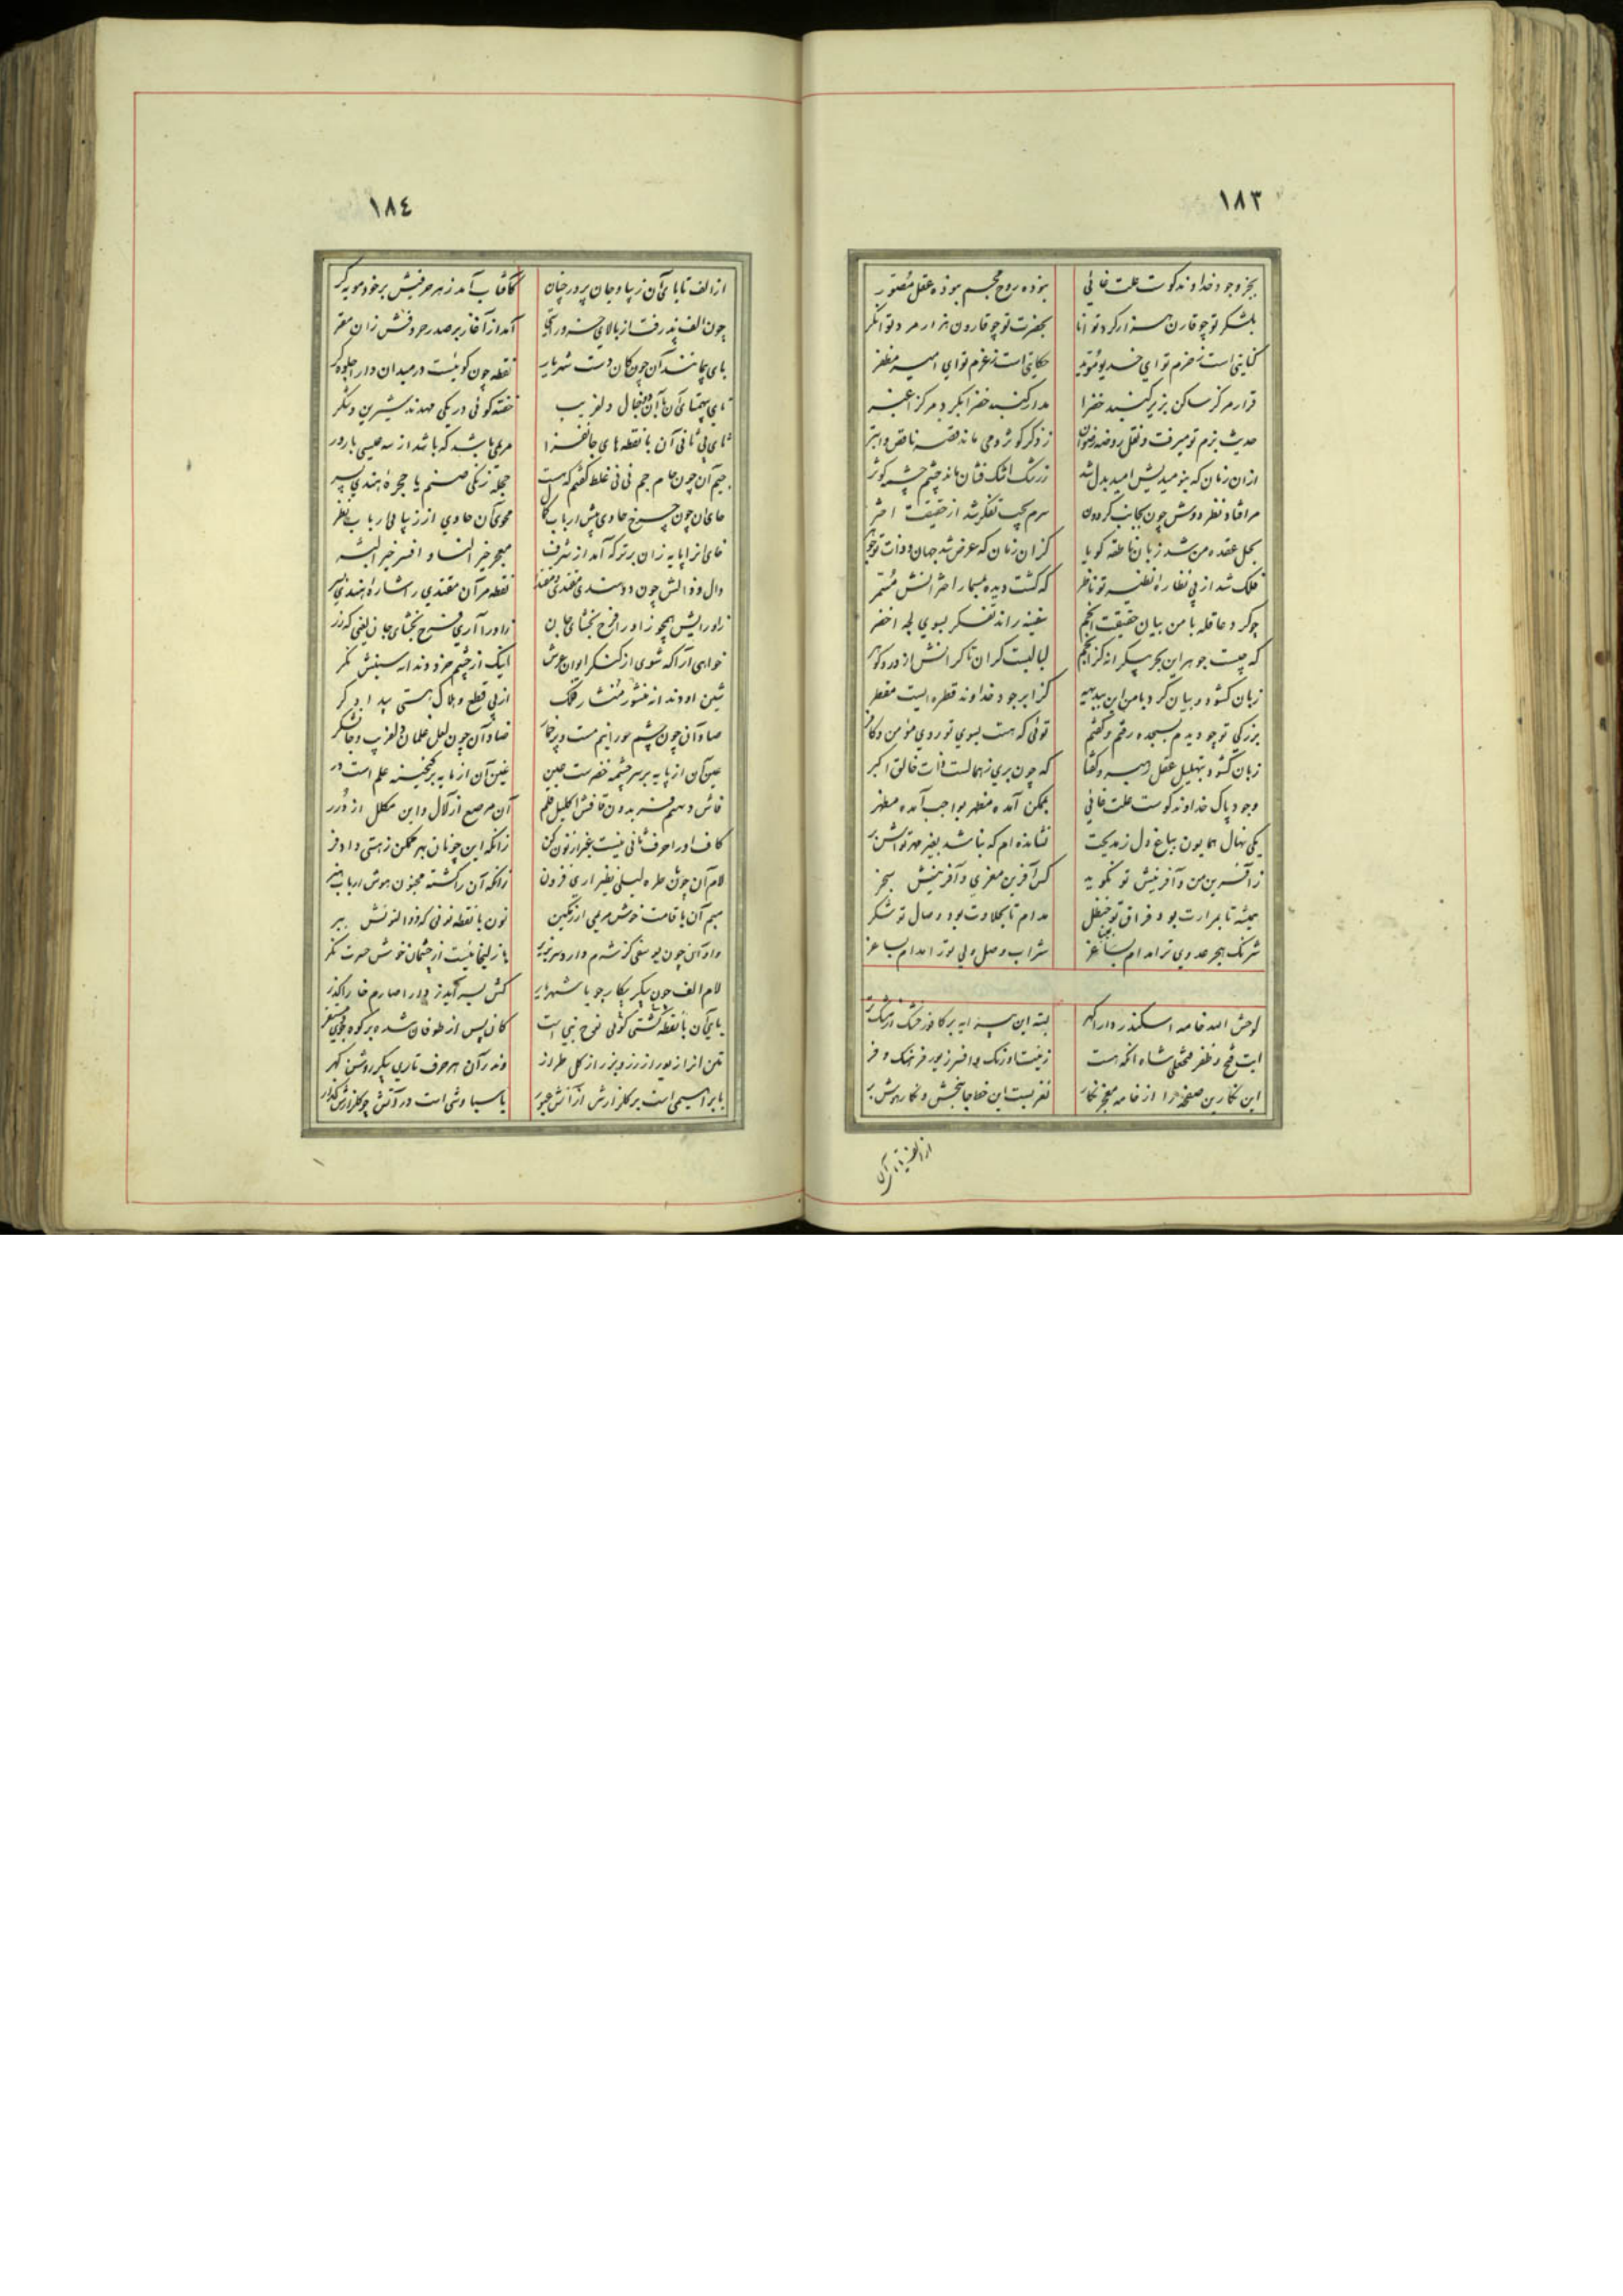 ١٨٣
بجز وجود خداوند کوست علت غائی بنوده روح مجسم بنوده عقل مصور
بلشکر تو چو قارن هزار کرد توانا بحضرت تو چو قارون هزار مرد توانکر
کنایتی است ز حزم تو ای خدیو مؤید حکایتی است ز عزم تو ای امیر مظفر
قرار مرکز ساکن بزیر کنبد خضرا مدار کنبد خضرا بکرد مرکز اغبر
حدیث بزم تو میرفت و نقل روضه رضوان ز ذکر کوثر و می ماند قصه ناقص و ابتر
ازان زمان که بنومیدیش امید بدل شد ز رشک اشک فشان ماند چشم چشمه کوثر
مرا فتاد نظر دوش چون بجانب کردون سرم بجیب تفکر شد از حقیقت اختر
بحل عقده من شد زبان ناطقه کویا کزان زمان که عرض شد جهان و ذات تو جوهر
فلک شد از پی نظاره نظیر تو ناظر که کشت دیده بیمار اخترانش مستمر
چو کرد عاقله با من بیان حقیقت انجم سفینه راند تفکر بسوی لجه اخضر
که چیست جوهر این بحر بیکرانه کز انجم لبالبست کران تا کرانش از در و کوهر
زبان کشود و بیان کرد با من این ببدیهه کز ابر جود خداوند قطره ایست مقطر
بزرکی تو چو دیدم بسجده رفتم و کفتم توئی که هست بسوی تو روی مؤمن و کافر
زبان کشود بتهلیل عقل پیر و کفتا که چون بری ز همالست ذات خالق اکبر
وجود پاک خداوند کوست علت غائی بممکن آمده مظهر بواجب آمده مظهر
یکی نهال همایون بباغ دل ز مدیحت نشانده ام که نباشد بغیر مهر تواش بر
ز آفرین من و آفرینش تو نکو به کس آفرین معزی و آفرینش سنجر
همیشه تا بمرارت بود فراق تو حنظل مدام تا بحلاوت بود وصال تو شکر
شرنک هجر عدوی ترا مدام بساغر شراب وصل ولی تو را مدام بساغر
لوحش الله خامه اسکندر دارا کهر بسته این پیرایه بر کافور خشک از مشک تر
آیت فتح و ظفر فتحعلی شاه انکه هست زینت اورنک و افسر زیور فرهنک و فر
این نکارین صفحه را از خامه معجز نکار نغز بست این خط جانبخش و نکار هوش بر
از الف تا یای آن
١٨٤
از الف تا یای آن زیبا و جان پرور چنان کآفتاب آمد ز هر حرفیش بر خود مویه کر
چون الف پذرفت از بالای خسرو راستی آمد از آغاز بر صدر حروفش زان مقر
بای بیمانند آن چون کان دست شهریار نقطه چون کوئیست در میدان دارا جلوه کر
تای بیهمتای آن با آن دو خال دلفریب خفته کوئی در یکی مهدند شیرین و شکر
ثای بی ثانی آن با نقطه های جانفزا مریمی باشد که باشد از سه عیسی بارور
جیم آن چون جام جم نی نی غلط کفتم که هست حجله زنکی صنم یا حجره هندی پسر
حای آن چون چرخ حاوی پیش ارباب کمال محوی آن حاوی از زیبائی ارباب نظر
خای انرا پایه زان برتر که آمد از شرف معجر خیر النساء و افسر خیر البشر
دال و ذالش چون دو سندی مقتدی و مقتدا نقطه مر آن مقتدی را شاره هندی بسر
را و زایش همچو زاد راه فرح بخشای جان زاد راه آری فرح بخشای جان لیکن که زر
خواهی آرا که شوی از کنکر ایوان عرش اینک از چشم خرد دندانه سینش نکر
شین او دندانه منشور منشار فلک از پی قطع و هلاک هستی بیدادکر
صاد آن چون چشم حورانیم مست و پر خمار ضاد آن چون لعل غلمان دلفریب و جان شکر
عین آن از پایه بر سرچشمه خضرست عین غین آن از مایه بر کنجینه علم است در
فاش دیهیم فریدون قافش اکلیل جم آن مرصع از لآل و این مکلل از درر
کاف او را حرف ثانی نیست بغیر از نون کن زانکه این چونان بهر ممکن ز هستی داد فر
لام آن چون طره لیلی نظیر اری فزون زانکه آن را کشته مجنون هوش ارباب هنر
میم آن با قامت خوش مریمی ارزنکین نون با نقطه نونی که ذوالنونش ببر
واو آن چون یوسفی کز شرم دارد سر بزیر یا زلیخائیست از چشمان خوش حسرت نکر
لام الف چون پیکر پیکار جو با شهریار کش بسر آید ز دارا صارم خارا کذر
یای آن با نقطه کشتی کوئی نوح نبی است کان پس از طوفان شده بر کوه جودی مستقر
تن انرا زیور از زر و زیور از کل طراز وندر آن هر حرف تاری پیکر روشن کهر
یا براهیمی است بر کلزارش از آتش عبور یا سیاوشی است در آتش چو کلزارش کذار